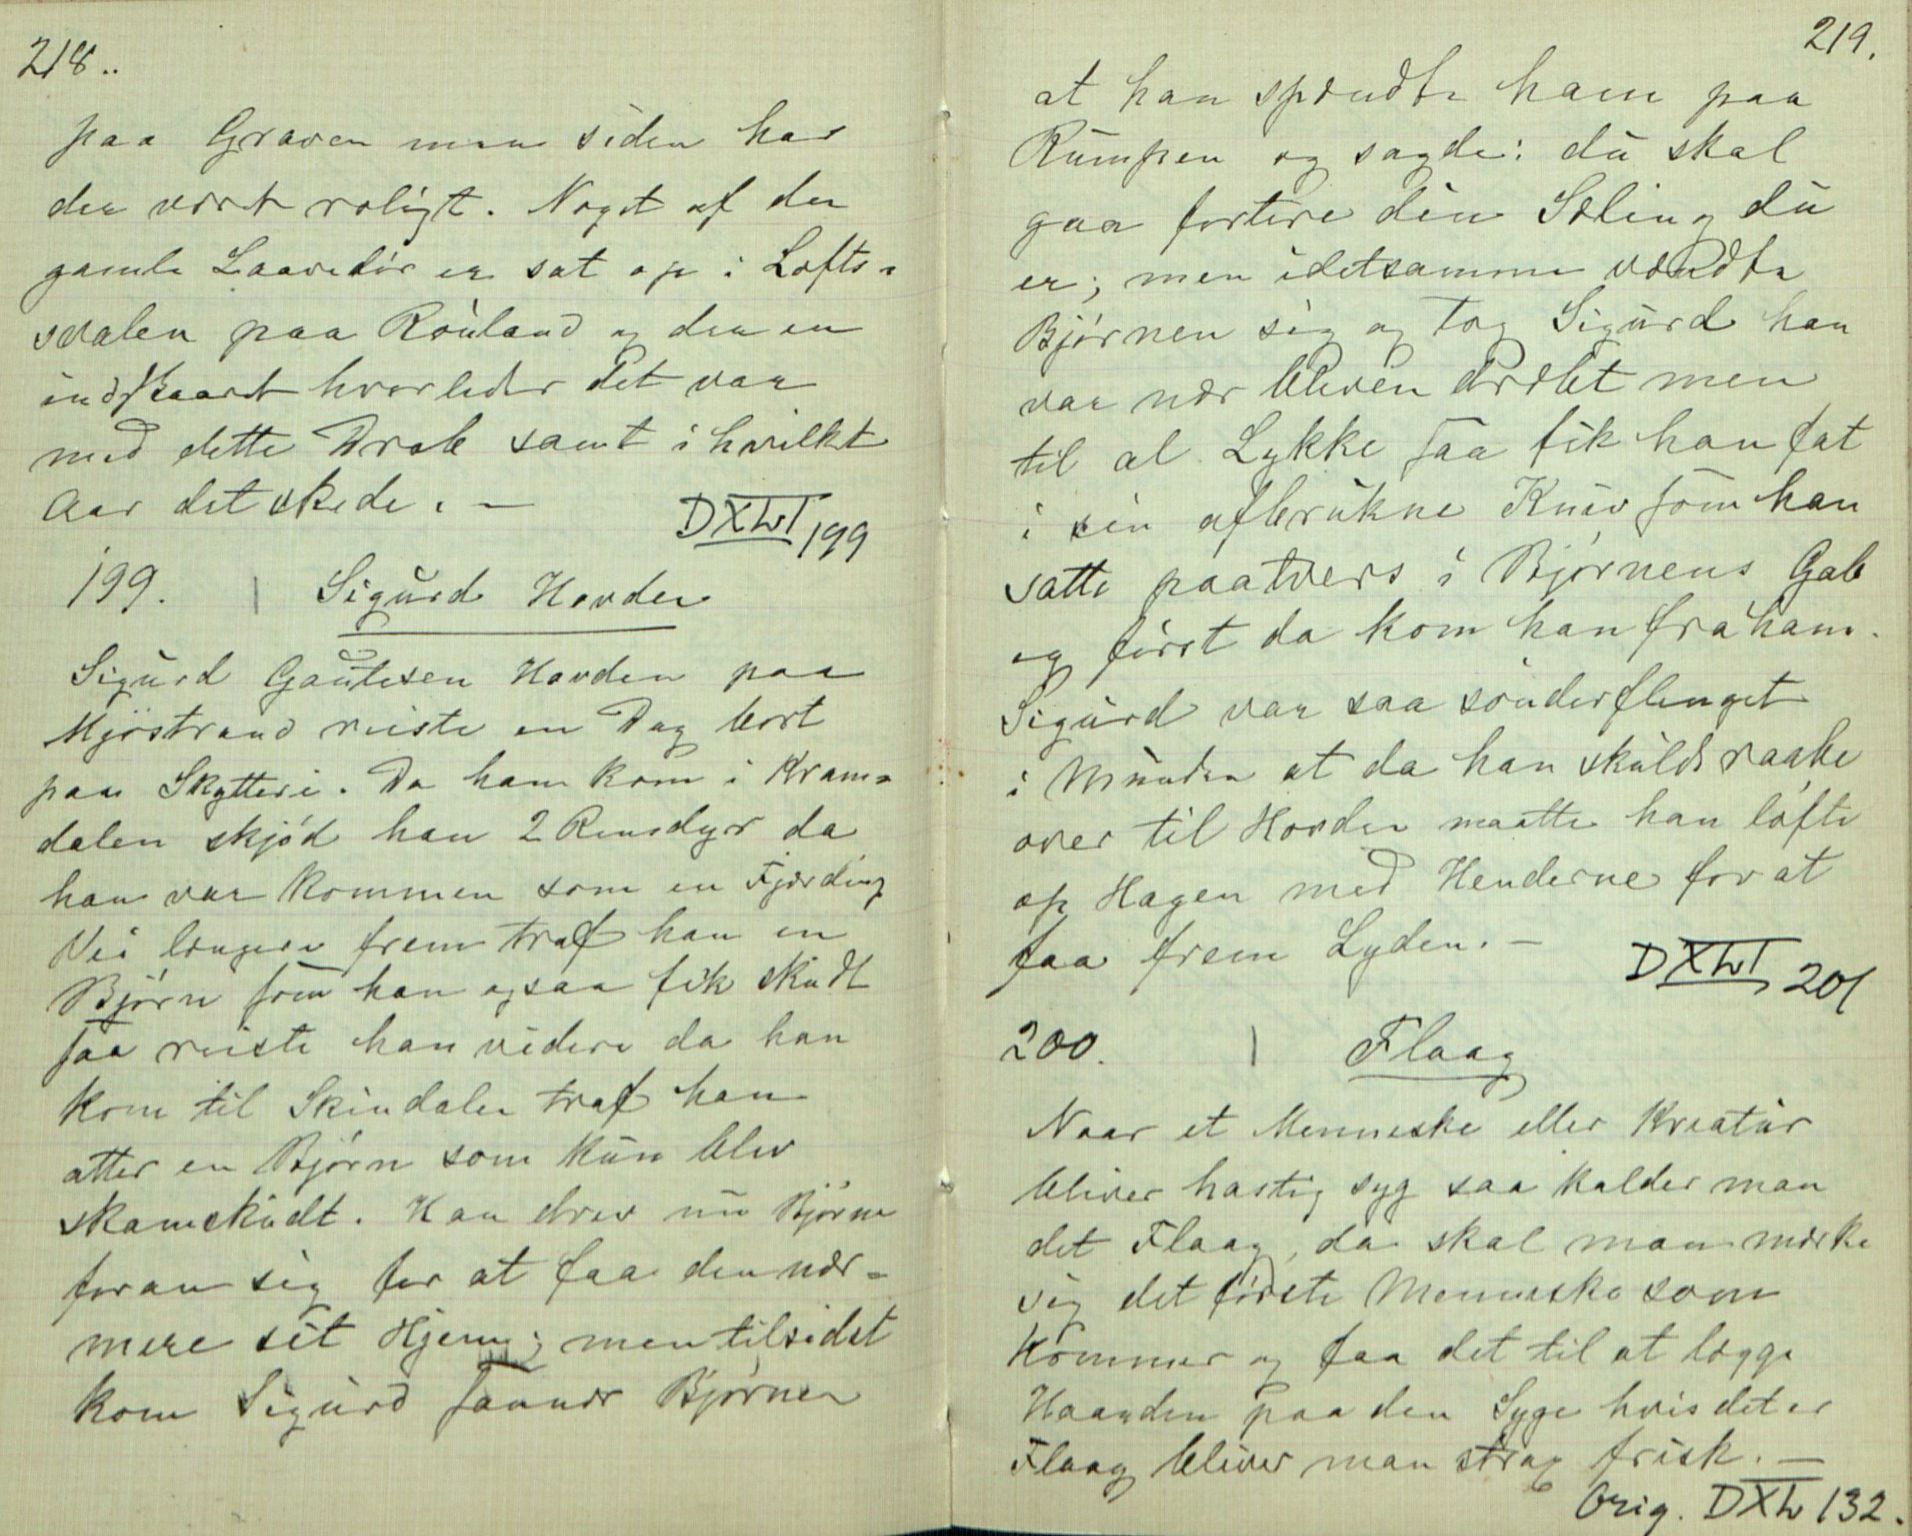 218..
paa Graven men siden har
der vært roligt. Noget af den
gamle Laavedör er sat op i Lofts-
svalen paa Röuland og der er
indskaaret hvorledes det var
med dette Drab samt i hvilket
Aar det skede. —
DXLVI 199
199. | Sigurd Hovden
Sigurd Gautesen Hovden paa
Mjöstrand reiste en Dag bort
paa Skytteri. Da han kom i Kram-
dalen skjöd han 2 Rensdyr da
han var kommen som en Fjærding
Vei længere frem traf han en
Björn som han ogsaa fik skudt
saa reiste han videre da han
kom til Skindalen traf han
atter en Björn som kun blev
skamskudt. Han drev nu Björnen
foran sig for at faa den nær-
mere sit Hjem; men tilsidst
kom Sigurd saa nær Björnen
219.
at han spændte ham paa
Rumpen og sagde: du skal
gaa fortere din Söling du
er; men idetsamme vændte
Björnen sig og tog Sigurd han
var nær bleven dræbt men
til al Lykke saa fik han fat
i sin afbrukne Kniv som han
satte paatvers i Björnens Gab
og först da kom han fra ham.
Sigurd var saa sönderflenget
i Munden at da han skulde raabe
over til Hovden maatte han löfte
op Hagen med Henderne for at
faa frem Lyden. —
DXLVI 201
200. | Flaag
Naar et Menneske eller Kreatur
bliver hastig syg saa kalder man
det Flaag, da skal man mærke
sig det förste Menneske som
kommer og faa det til at lægge
Haanden paa den Syge hvis det er
Flaag bliver man strax frisk. —
Orig. DXLV 132.